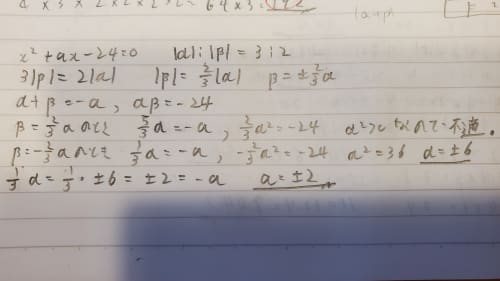 x² + ax - 24 = 0  |α| : |β| = 3 : 2
3|β| = 2|α|  |β| = 2/3|α|  β = ±2/3α
α + β = -a , αβ = -24
β = 2/3αのとき  5/3α = -a , 2/3α² = -24  α² > 0 なので不適.
β = -2/3αのとき  1/3α = -a , -2/3α² = -24  α² = 36  α = ±6
1/3α = 1/3・±6 = ±2 = -a  a = ±2